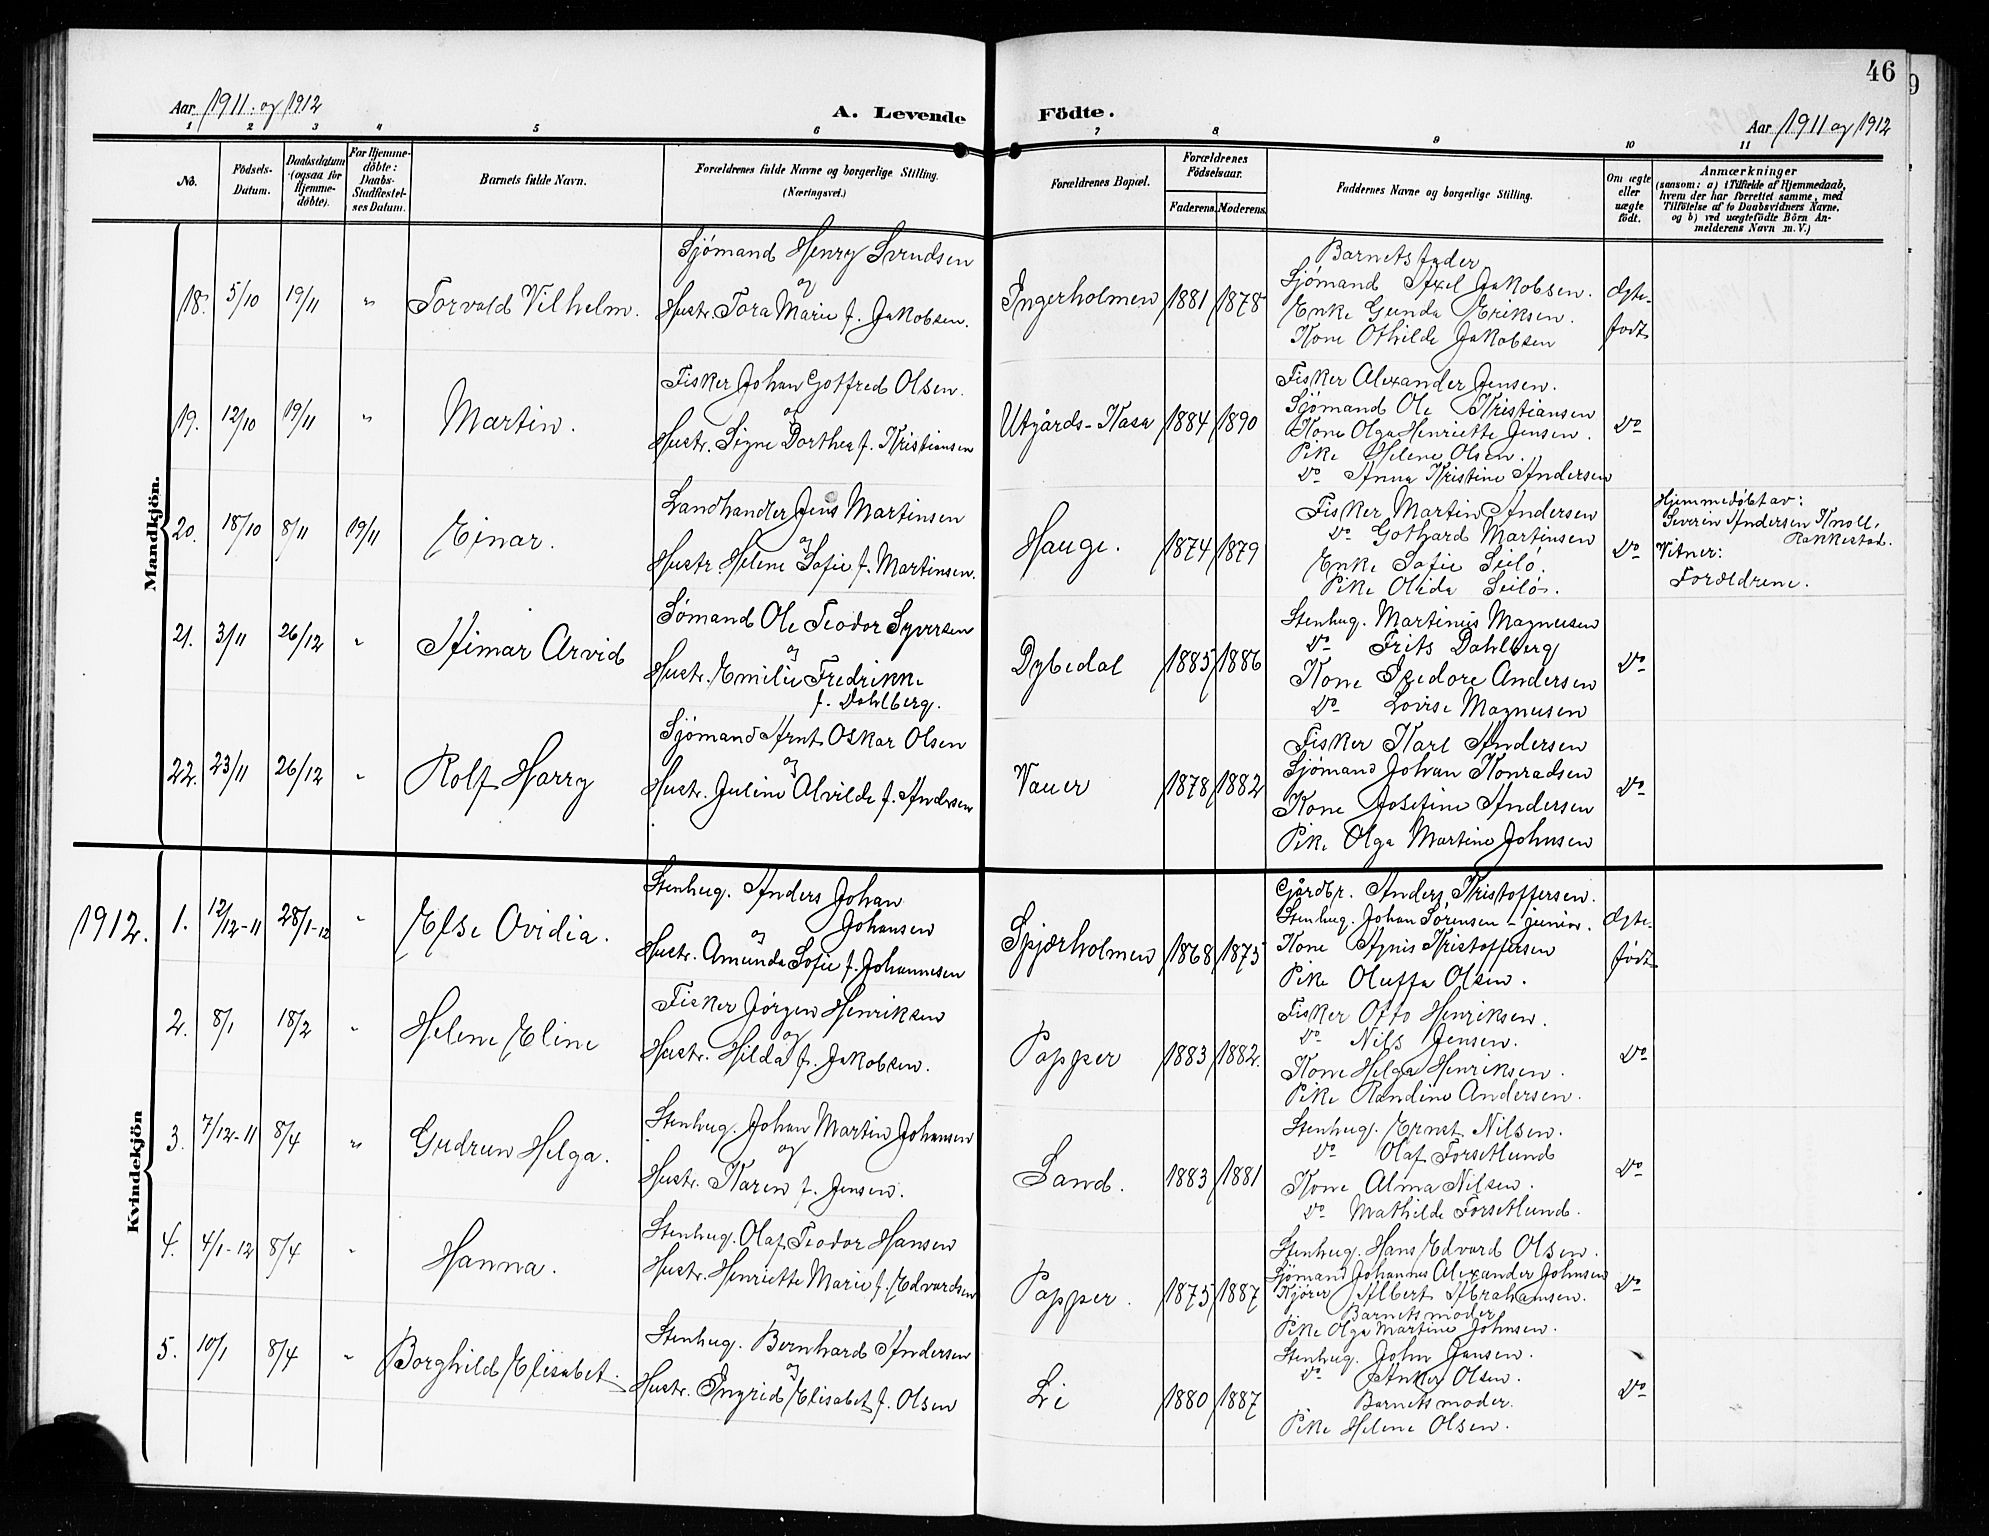 46
Aar 1911 og 1912
A. Levende Födte.
Aar 1911 og 1912
1 2 3 4 5 6 7 8 9 10 11
No.
Födsels-
Datum.
Daabsdatum
(ogsaa för
Hjemme-
döbte).
For Hjemme-
döbte:
Daabs-
Stadfæstel-
ses Datum.
Barnets fulde Navn.
Forældrenes fulde Navne og borgerlige Stilling.
(Næringsvei.)
Forældrenes Bopæl.
Forældrenes
Födselsaar.
Faderens. Moderens.
Faddernes Navne og borgerlige Stilling.
Om ægte
eller
uægte
födt.
Anmærkninger
(sansom: a) i Tilfælde af Hjemmedaab,
hvem der har forrettet samme, med
Tilföielse af to Daabsvidners Navne,
og b) ved uægtefödte Börn An-
melderens Navn m. V.)
Mandkjön.
18. 5/10 19/11 " Torvald Vilhelm.
Sjömand Henry Svendsen
og
Hustr. Tora Marie f. Jakobsen.
Ingerholmen 1881 1878
Barnets fader
Sjömand Axel Jakobsen.
Enke Gunda Eriksen.
Kone Othilde Jakobsen
Ægte-
födt
19. 12/10 19/11 " Martin.
Fisker Johan Gotfred Olsen.
og
Hustr. Signe Dorthea f. Kristiansen
Utgårds-Kasa 1884 1890
Fisker Alexander Jensen.
Sjömand Ole Kristiansen
Kone Olga Henriette Jensen.
Pike Helene Olsen.
Do Anna Kristine Andersen
Do
20. 18/10 8/11 19/11 Einar.
Landhandler Jens Martinsen
og
Hustr. Helene Sofie f. Martinsen.
Hauge. 1874 1879
Fisker Martin Andersen
Do Gothard Martinsen
Enke Sofie Seilö.
Pike Olida Seilö.
Do
Hjemmedöbt av:
Severin Andersen Knoll,
Rakkestad.
Vitner:
Forældrene.
21. 3/11 26/12 " Himar Arvid
Sömand Ole Teodor Syversen
og
Hustr. Emilie Fredrikke
f. Dahlberg.
Dybedal 1885 1886
Stenhug. Martinius Magnusen
Do Frits Dahlberg
Kone Isedore Andersen
Do Lovise Magnusen
Do
22. 23/11 26/12 " Rolf Harry
Sjömand Arnt Oskar Olsen
og
Hustr. Juline Alvilde f. Andersen
Vauer 1878 1882
Fisker Karl Andersen
Sjömand Johan Konradsen
Kone Josefine Andersen
Pike Olga Martine Johnsen
Do
1912.
Kvindekjön
1. 12/12-11 28/1-12 " Else Ovidia.
Stenhug. Anders Johan
Johansen
og
Hustr. Amunda Sofie f. Johannesen
Spjærholmen 1868 1875
Gårdbr. Anders Kristoffersen.
Stenhug. Johan Sörensen - junior.
Kone Agnis Kristoffersen
Pike Oluffa Olsen.
Ægte-
födt
2. 8/1 18/2 " Helene Eline
Fisker Jörgen Henriksen
og
Hustr. Hilda f. Jakobsen.
Papper 1883 1882.
Fisker Otto Henriksen.
Do Nils Jensen.
Kone Helga Henriksen.
Pike Randine Andersen.
Do
3. 7/12-11 8/4 " Gudrun Helga.
Stenhug. Johan Martin Johansen
og
Hustr. Karen f. Jensen.
Sand. 1883 1881
Stenhug. Ernst Nilsen.
Do Olaf Forsetlund
Kone Alma Nilsen.
Do Mathilde Forsetlund.
Do
4. 4/1-12 8/4 " Hanna.
Stenhug. Olaf Teodor Hansen
Hustr. Henriette Marie f. Edvardsen
Papper. 1875 1887
Stenhug. Hans Edvard Olsen.
Sjömand Johannes Alexander Johnsen
Kjörer Albert Abrahamsen.
Barnets moder
Pike Olga Martine Johnsen.
Do
5. 10/1 8/4 " Borghild Elisabet.
Stenhug. Bernhard Andersen
og
Hustr. Ingrid Elisabet f. Olsen
Li 1880 1887
Stenhug. John Jansen.
Do Anker Olsen.
Barnets moder.
Pike Helene Olsen.
Do